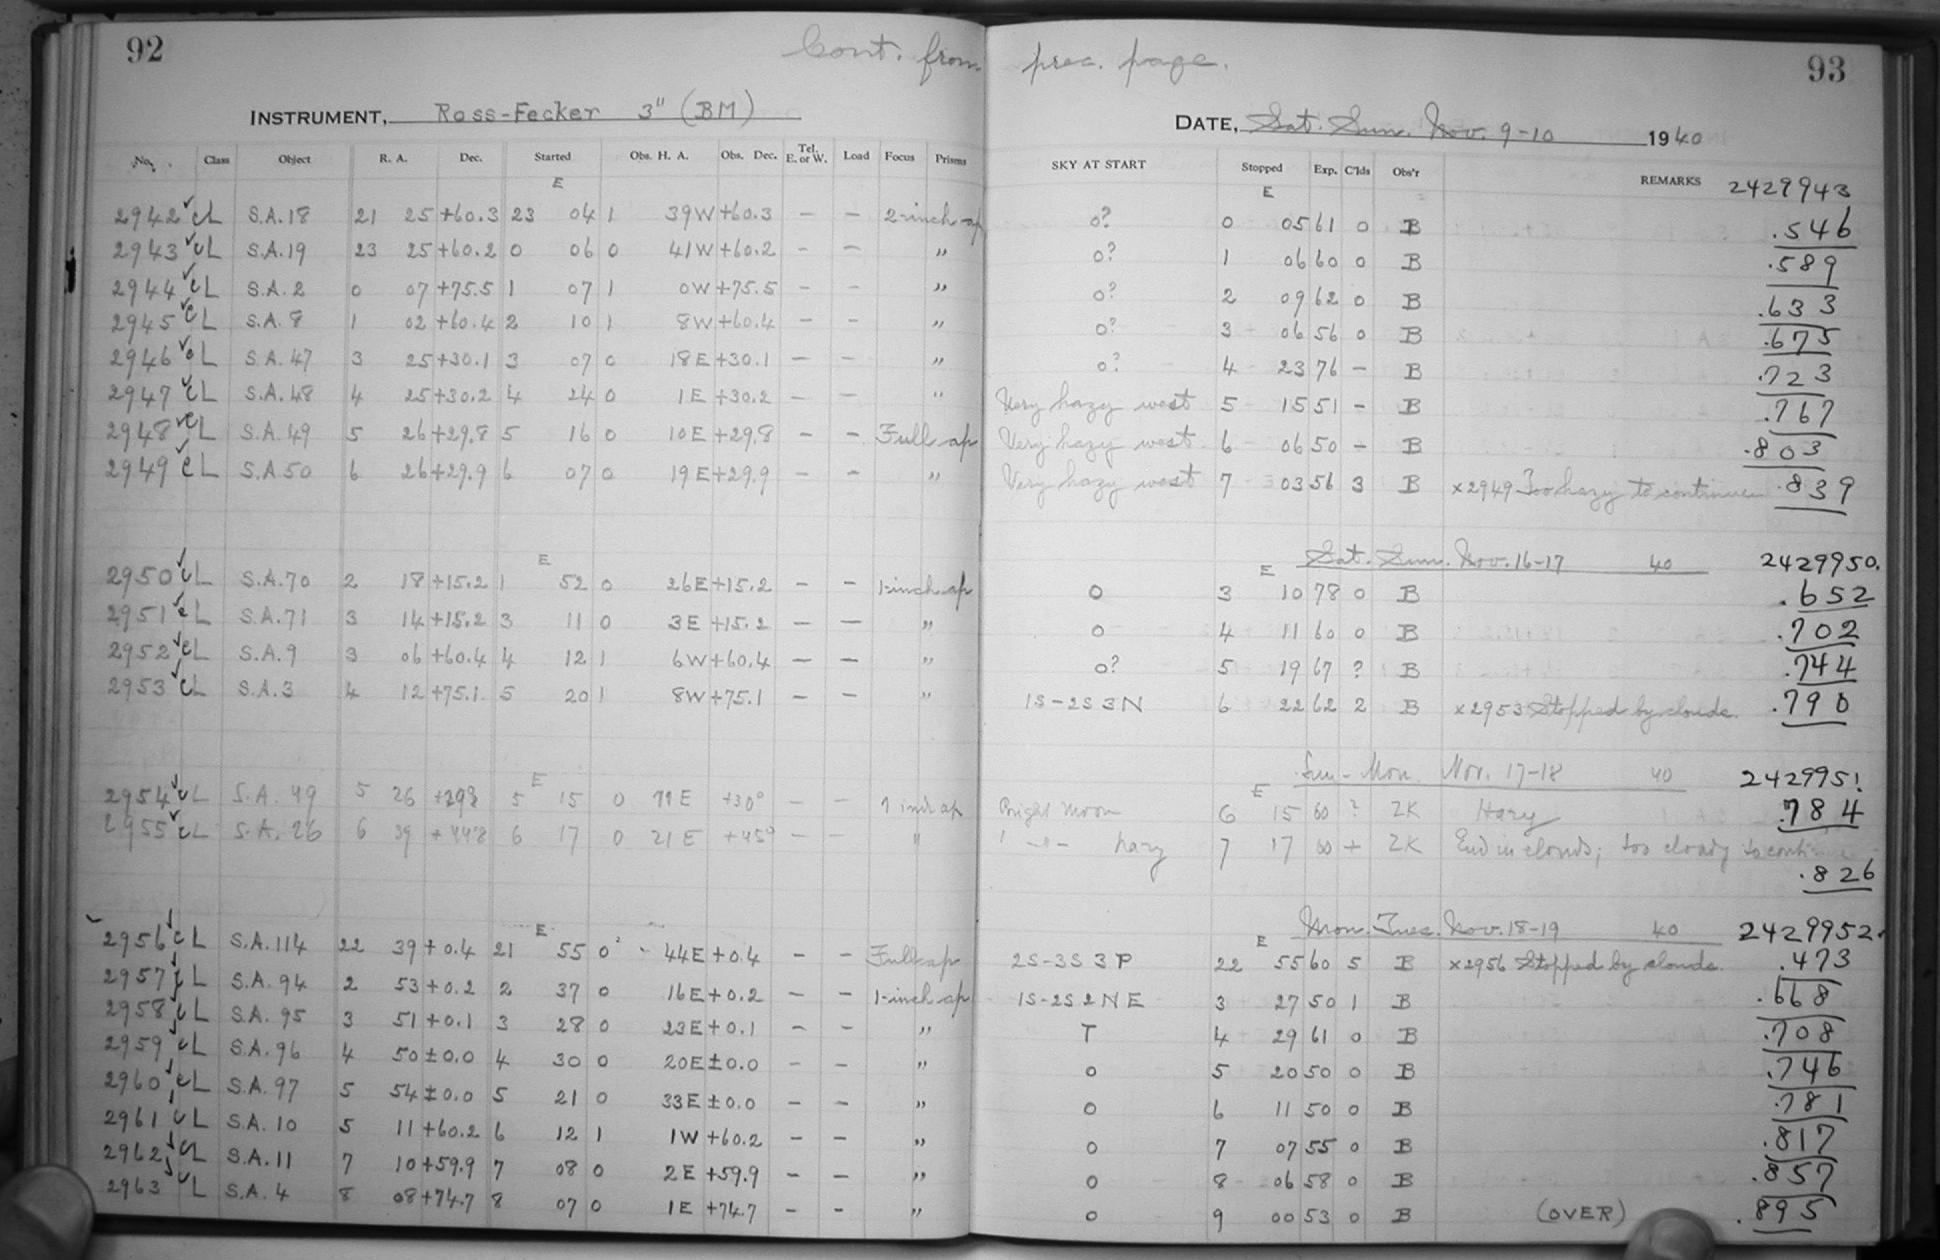 92
Cont. from prec. page.
93
INSTRUMENT, Ross-Fecker 3" (BM)
DATE, Sat. Sun. Nov. 9-10 1940
No. Class Object R. A. Dec. Started Obs. H. A. Obs. Dec. Tel. E. or W. Load Focus Prisms SKY AT START Stopped Exp. C'lds Obs'r REMARKS 2429943
E E
2942 ✓ cL S.A. 18 21 25 +60.3 23 04 1 39W +60.3 – – 2-inch ap 0? 0 05 61 0 B .546
2943 ✓ cL S.A. 19 23 25 +60.2 0 06 0 41W +60.2 – – " 0? 1 06 60 0 B .589
2944 ✓ cL S.A. 2 0 07 +75.5 1 07 1 0W +75.5 – – " 0? 2 09 62 0 B .633
2945 ✓ cL S.A. 8 1 02 +60.4 2 10 1 8W +60.4 – – " 0? 3 06 56 0 B .675
2946 ✓ cL S.A. 47 3 25 +30.1 3 07 0 18E +30.1 – – " 0? 4 23 76 – B .723
2947 ✓ cL S.A. 48 4 25 +30.2 4 24 0 1E +30.2 – – " Very hazy west 5 15 51 – B .767
2948 ✓ cL S.A. 49 5 26 +29.8 5 16 0 10E +29.8 – – Full ap Very hazy west 6 06 50 – B .803
2949 ✓ cL S.A. 50 6 26 +29.9 6 07 0 19E +29.9 – – " Very hazy west 7 03 56 3 B x2949 Too hazy to continue .839
E E Sat. Sun. Nov. 16-17 40 2429950.
2950 ✓ cL S.A. 70 2 18 +15.2 1 52 0 26E +15.2 – – 1-inch ap 0 3 10 78 0 B .652
2951 ✓ cL S.A. 71 3 14 +15.2 3 11 0 3E +15.2 – – " 0 4 11 60 0 B .702
2952 ✓ cL S.A. 9 3 06 +60.4 4 12 1 6W +60.4 – – " 0? 5 19 67 ? B .744
2953 ✓ cL S.A. 3 4 12 +75.1 5 20 1 8W +75.1 – – " 1S-2S 3N 6 22 62 2 B x2953 Stopped by clouds. .790
E E Sun-Mon. Nov. 17-18 40 2429951
2954 ✓ cL S.A. 49 5 26 +298 5 15 0 11E +30° – – 1 inch ap Bright Moon 6 15 60 ? ZK Hazy .784
2955 ✓ cL S.A. 26 6 39 +448 6 17 0 21E +45° – – " " -"- hazy 7 17 60 + ZK End in clouds; too cloudy to continue .826
E E Mon. Tues. Nov. 18-19 40 2429952.
2956 ✓ cL S.A. 114 22 39 +0.4 21 55 0 44E +0.4 – – Full ap 2S-3S 3P 22 55 60 5 B x2956 Stopped by clouds. .473
2957 ✓ cL S.A. 94 2 53 +0.2 2 37 0 16E +0.2 – – 1-inch ap 1S-2S 2NE 3 27 50 1 B .668
2958 ✓ cL S.A. 95 3 51 +0.1 3 28 0 23E +0.1 – – " T 4 29 61 0 B .708
2959 ✓ cL S.A. 96 4 50 ±0.0 4 30 0 20E ±0.0 – – " 0 5 20 50 0 B .746
2960 ✓ cL S.A. 97 5 54 ±0.0 5 21 0 33E ±0.0 – – " 0 6 11 50 0 B .781
2961 ✓ cL S.A. 10 5 11 +60.2 6 12 1 1W +60.2 – – " 0 7 07 55 0 B .817
2962 ✓ cL S.A. 11 7 10 +59.9 7 08 0 2E +59.9 – – " 0 8 06 58 0 B .857
2963 ✓ cL S.A. 4 8 08 +74.7 8 07 0 1E +74.7 – – " 0 9 00 53 0 B (OVER) .895